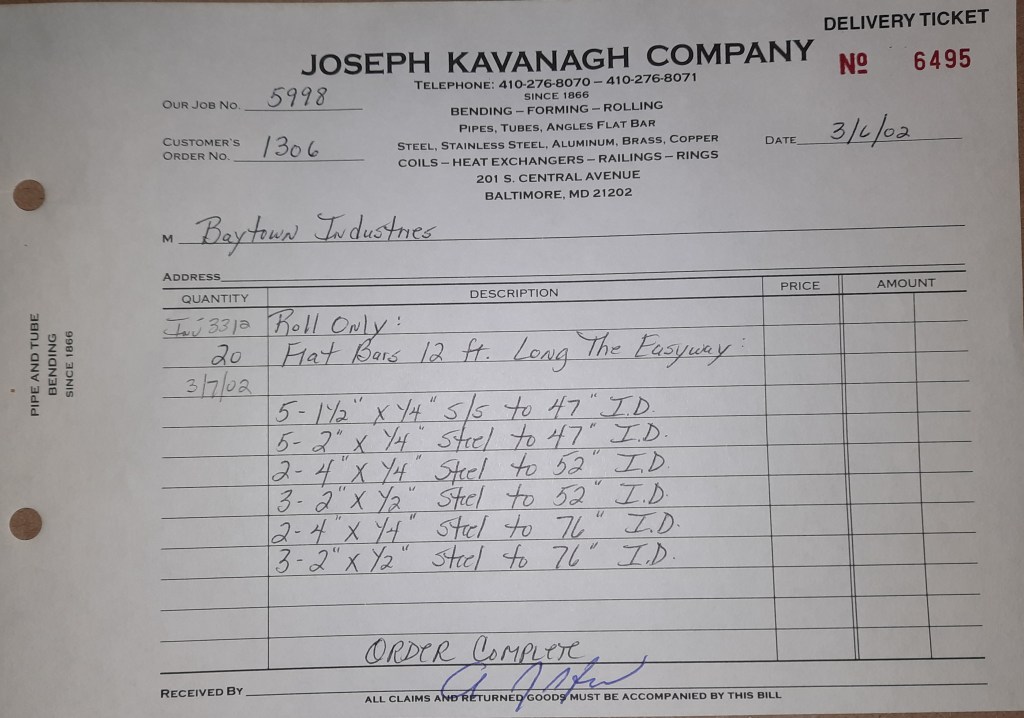 DELIVERY TICKET
JOSEPH KAVANAGH COMPANY
Nº 6495
TELEPHONE: 410-276-8070 – 410-276-8071
SINCE 1866
OUR JOB NO. 5998
BENDING – FORMING – ROLLING
PIPES, TUBES, ANGLES FLAT BAR
CUSTOMER'S ORDER NO. 1306
STEEL, STAINLESS STEEL, ALUMINUM, BRASS, COPPER
DATE 3/6/02
COILS – HEAT EXCHANGERS – RAILINGS – RINGS
201 S. CENTRAL AVENUE
BALTIMORE, MD 21202
M Baytown Industries
ADDRESS
QUANTITY DESCRIPTION PRICE AMOUNT
Inv Roll Only:
20 Flat Bars 12 ft. Long The Easyway:
3/7/02
5- 1 1/2" X 1/4" S/S to 47" I.D.
5- 2" X 1/4" Steel to 47" I.D.
2- 4" X 1/4" Steel to 52" I.D.
3- 2" X 1/2" Steel to 52" I.D.
2- 4" X 1/4" Steel to 76" I.D.
3- 2" X 1/2" Steel to 76" I.D.
ORDER COMPLETE
RECEIVED BY
ALL CLAIMS AND RETURNED GOODS MUST BE ACCOMPANIED BY THIS BILL
PIPE AND TUBE
BENDING
SINCE 1866